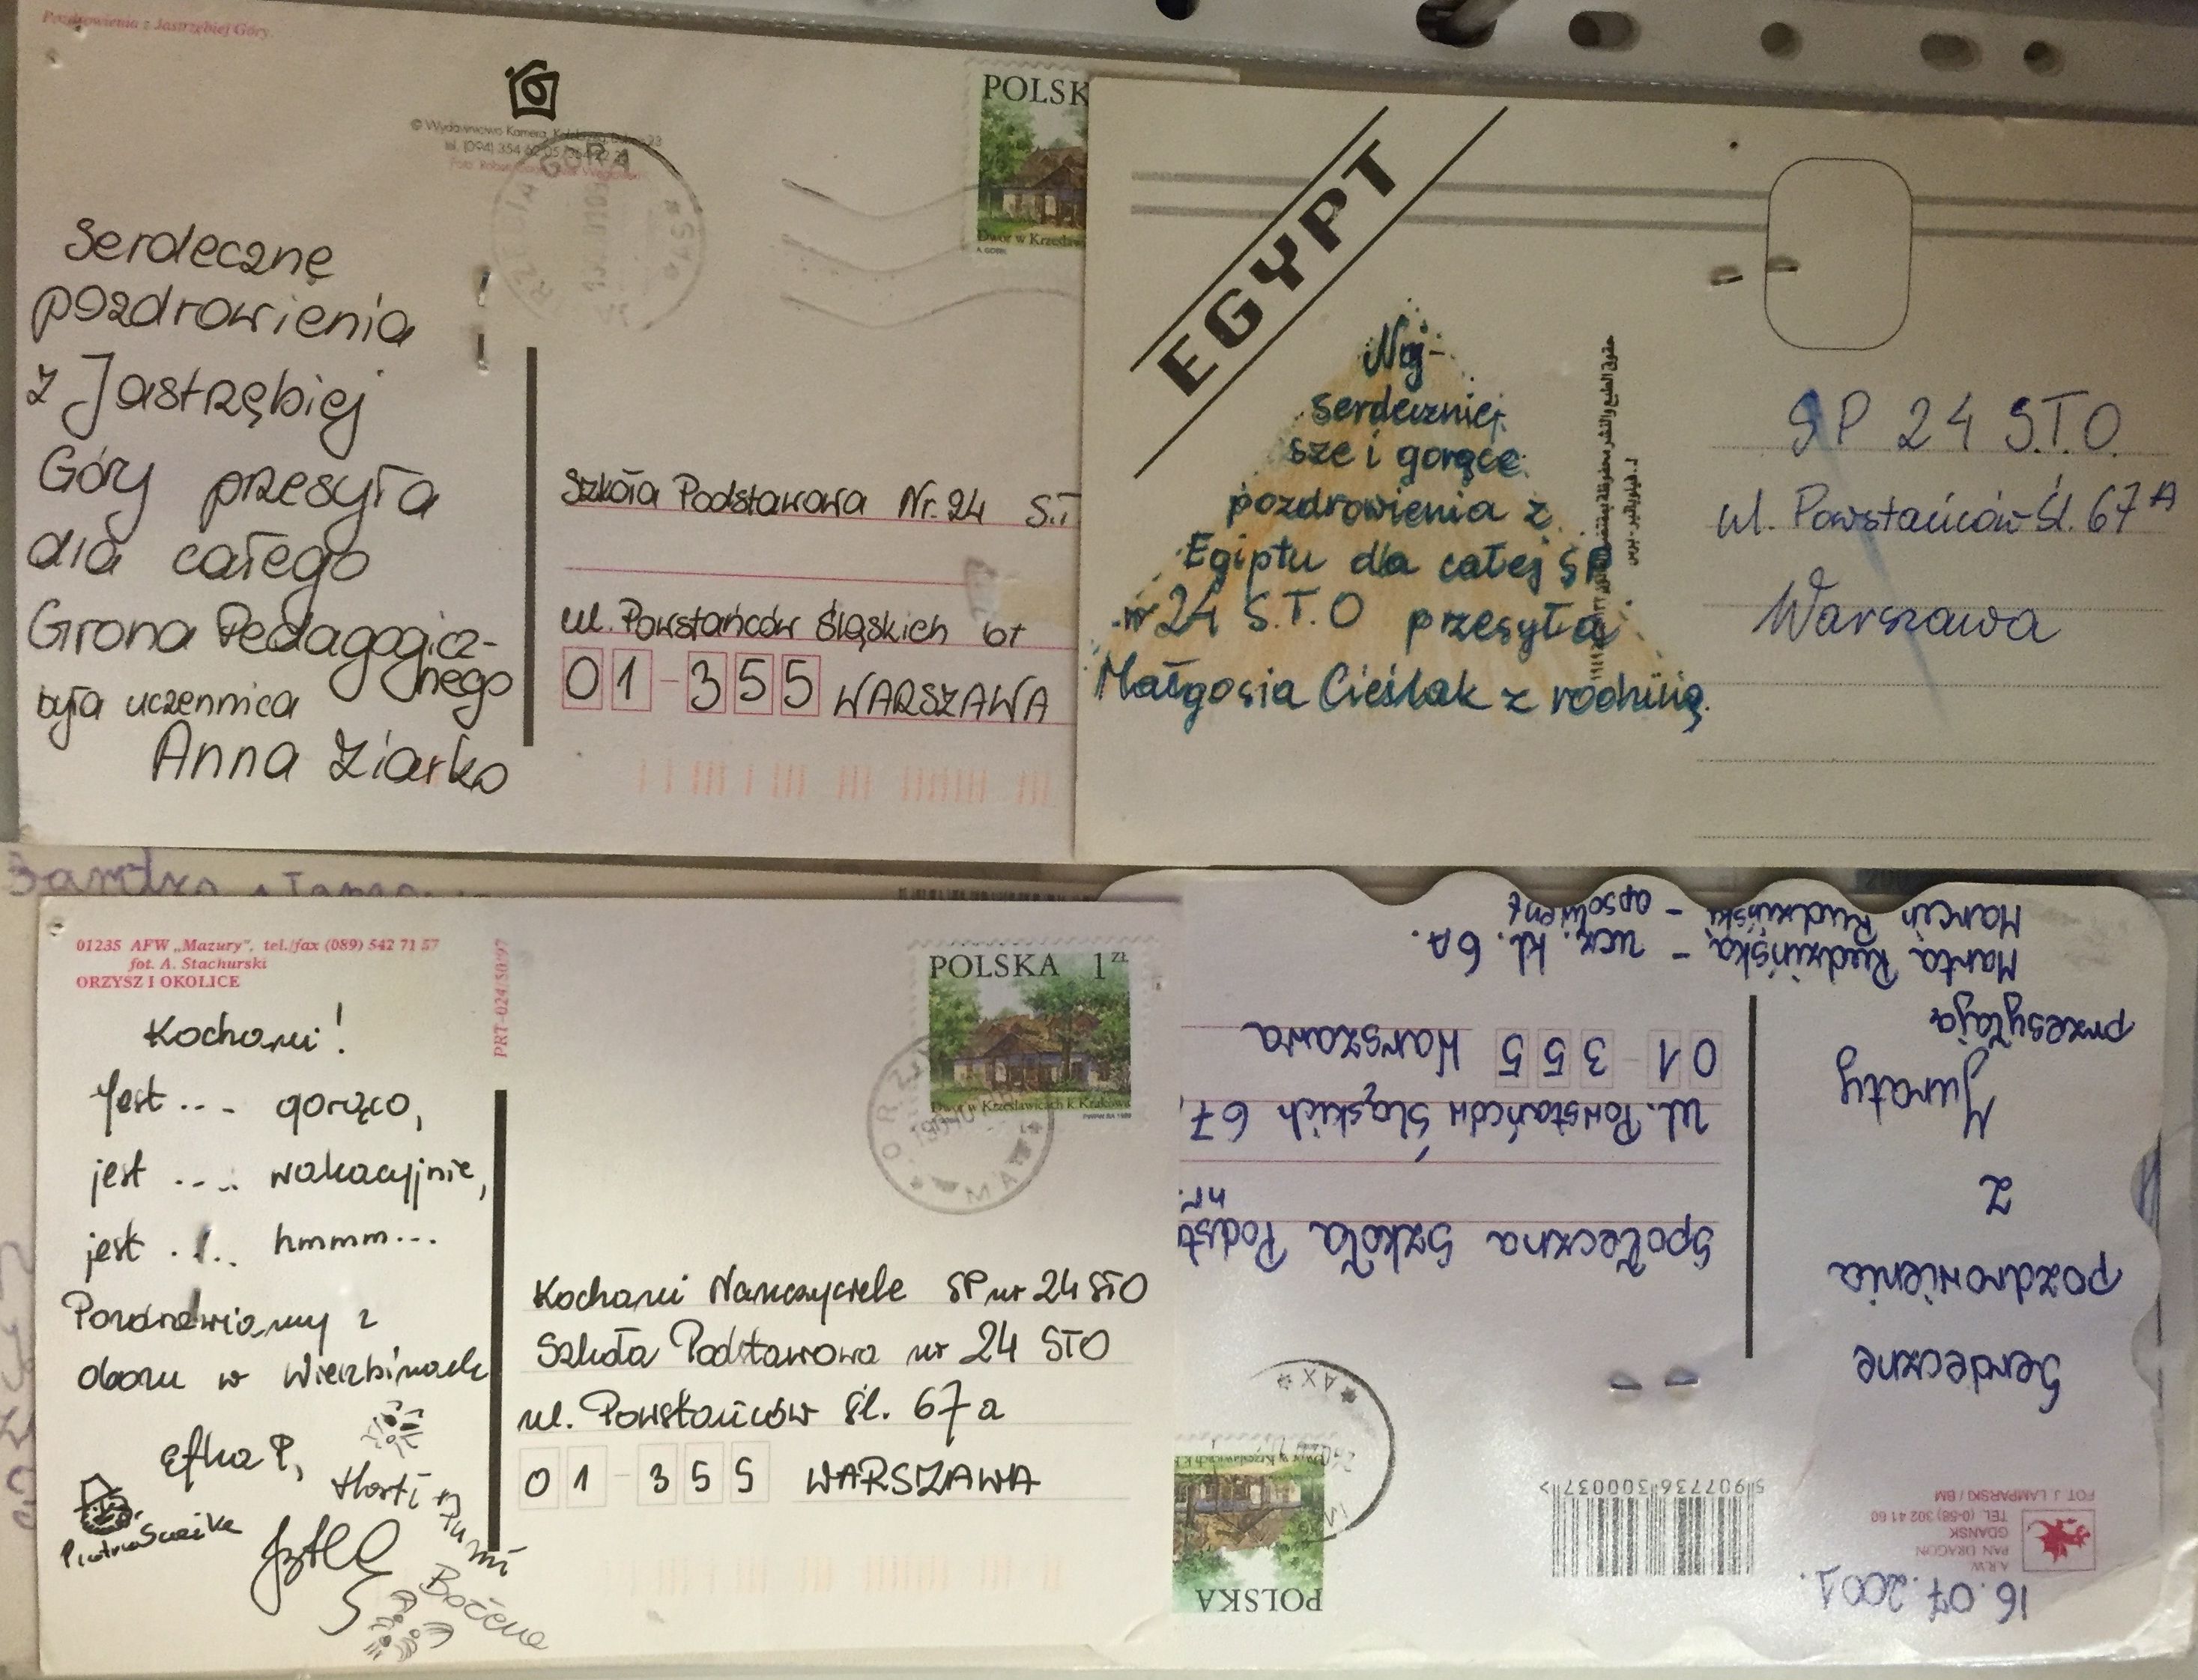 Pozdrowienia z Jastrzębiej Góry
© Wydawnictwo Kamera,
tel. (094) 354
GÓRA
POLSK
Dwór w Krzesław
Serdeczne
pozdrowienia
z Jastrzębiej
Góry przesyła
dla całego
Grona Pedagogicz-
nego
była uczennica
Anna Ziarko
Szkoła Podstawowa Nr. 24 S.T
ul. Powstańców Śląskich 67
01-355 WARSZAWA
EGYPT
Naj-
serdeczniej-
sze i gorące
pozdrowienia z
Egiptu dla całej SP
nr 24 S.T.O przesyła
Małgosia Cieślak z rodziną.
حقوق الطبع والنشر محفوظة
SP 24 S.T.O.
ul. Powstańców Śl. 67A
Warszawa
01235 AFW „Mazury", tel./fax (089) 542 71 57
fot. A. Stachurski
ORZYSZ I OKOLICE
PRT-024/50/97
Kochani!
Jest ... gorąco,
jest .... wakacyjnie,
jest .... hmmm...
Pozdrawiamy z
obozu w Wierzbinach
Efka P,
Horti
Rumi
Bożena
POLSKA 1 ZŁ
Dwór w Krzesławicach k. Krakowa
Kochani Nauczyciele SP nr 24 STO
Szkoła Podstawowa nr 24 STO
ul. Powstańców Śl. 67a
01-355 WARSZAWA
16.07.2001.
A.R.W.
PAN DRAGON
GDAŃSK
TEL. (0-58) 302 41 60
FOT J. LAMPARSKI / BM
5 907736 300037 >
POLSKA
Serdeczne
pozdrowienia
z
Juraty
przesyłają
Marta Rudzińska - ucz. kl. 6A.
Marcin Rudziński - absolwent
Społeczna Szkoła Podst
nr.
ul. Powstańców Śląskich 67,
01-355 Warszawa